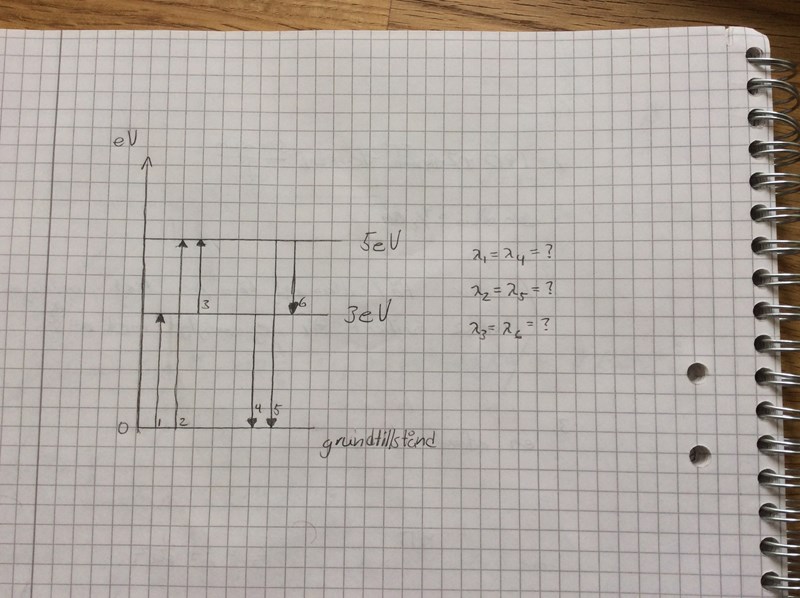 eV
5eV
3
6
3eV
4
5
0
1
2
grundtillstånd
λ₁ = λ₄ = ?
λ₂ = λ₅ = ?
λ₃ = λ₆ = ?